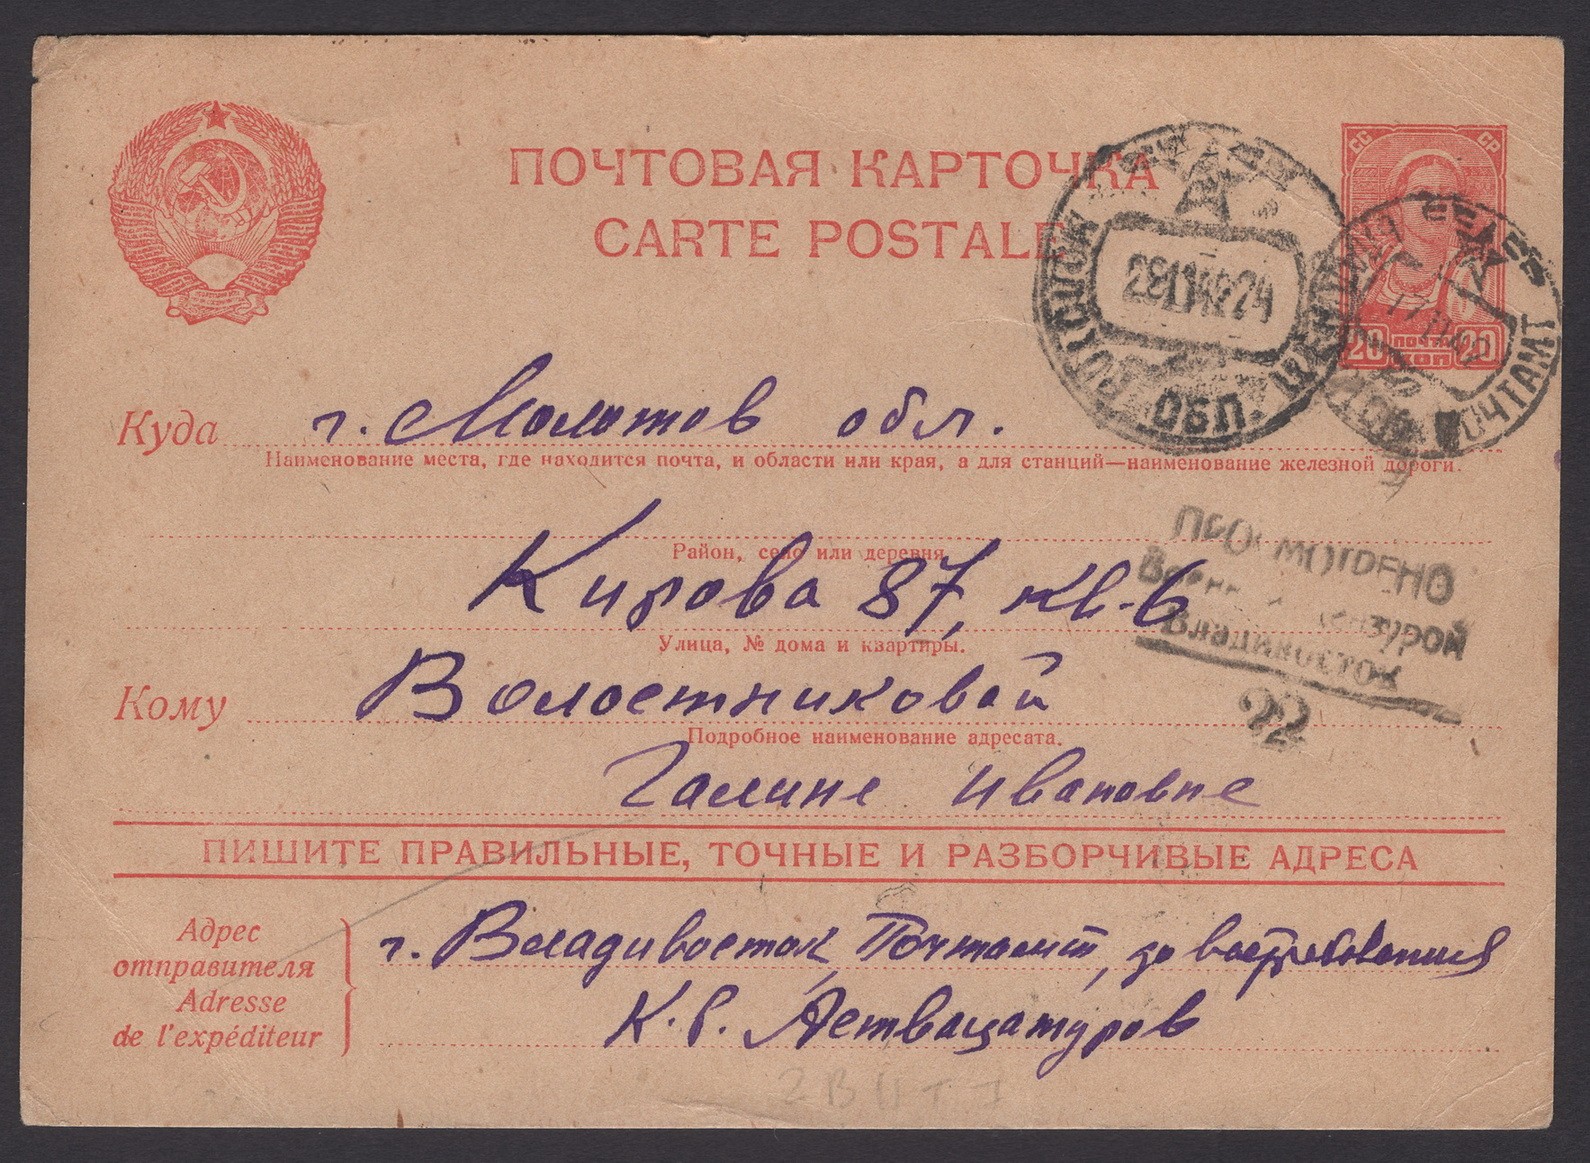 ПОЧТОВАЯ КАРТОЧКА
CARTE POSTALE
СС СР
20 ПОЧТА 20
КОП
28 11 42 24
ОБЛ.
ПОЧТАМТ
Куда г. Молотов обл.
Наименование места, где находится почта, и области или края, а для станций—наименование железной дороги.
Район, село или деревня
Кирова 87, кв-6
Улица, № дома и квартиры.
ПРОСМОТРЕНО
Военной Цензурой
Владивосток
22
Кому Волостниковой
Подробное наименование адресата.
Галине Ивановне
ПИШИТЕ ПРАВИЛЬНЫЕ, ТОЧНЫЕ И РАЗБОРЧИВЫЕ АДРЕСА
Адрес
отправителя
Adresse
de l'expéditeur
г. Владивосток, Почтамт, до востребования
К. Г. Аствацатуров